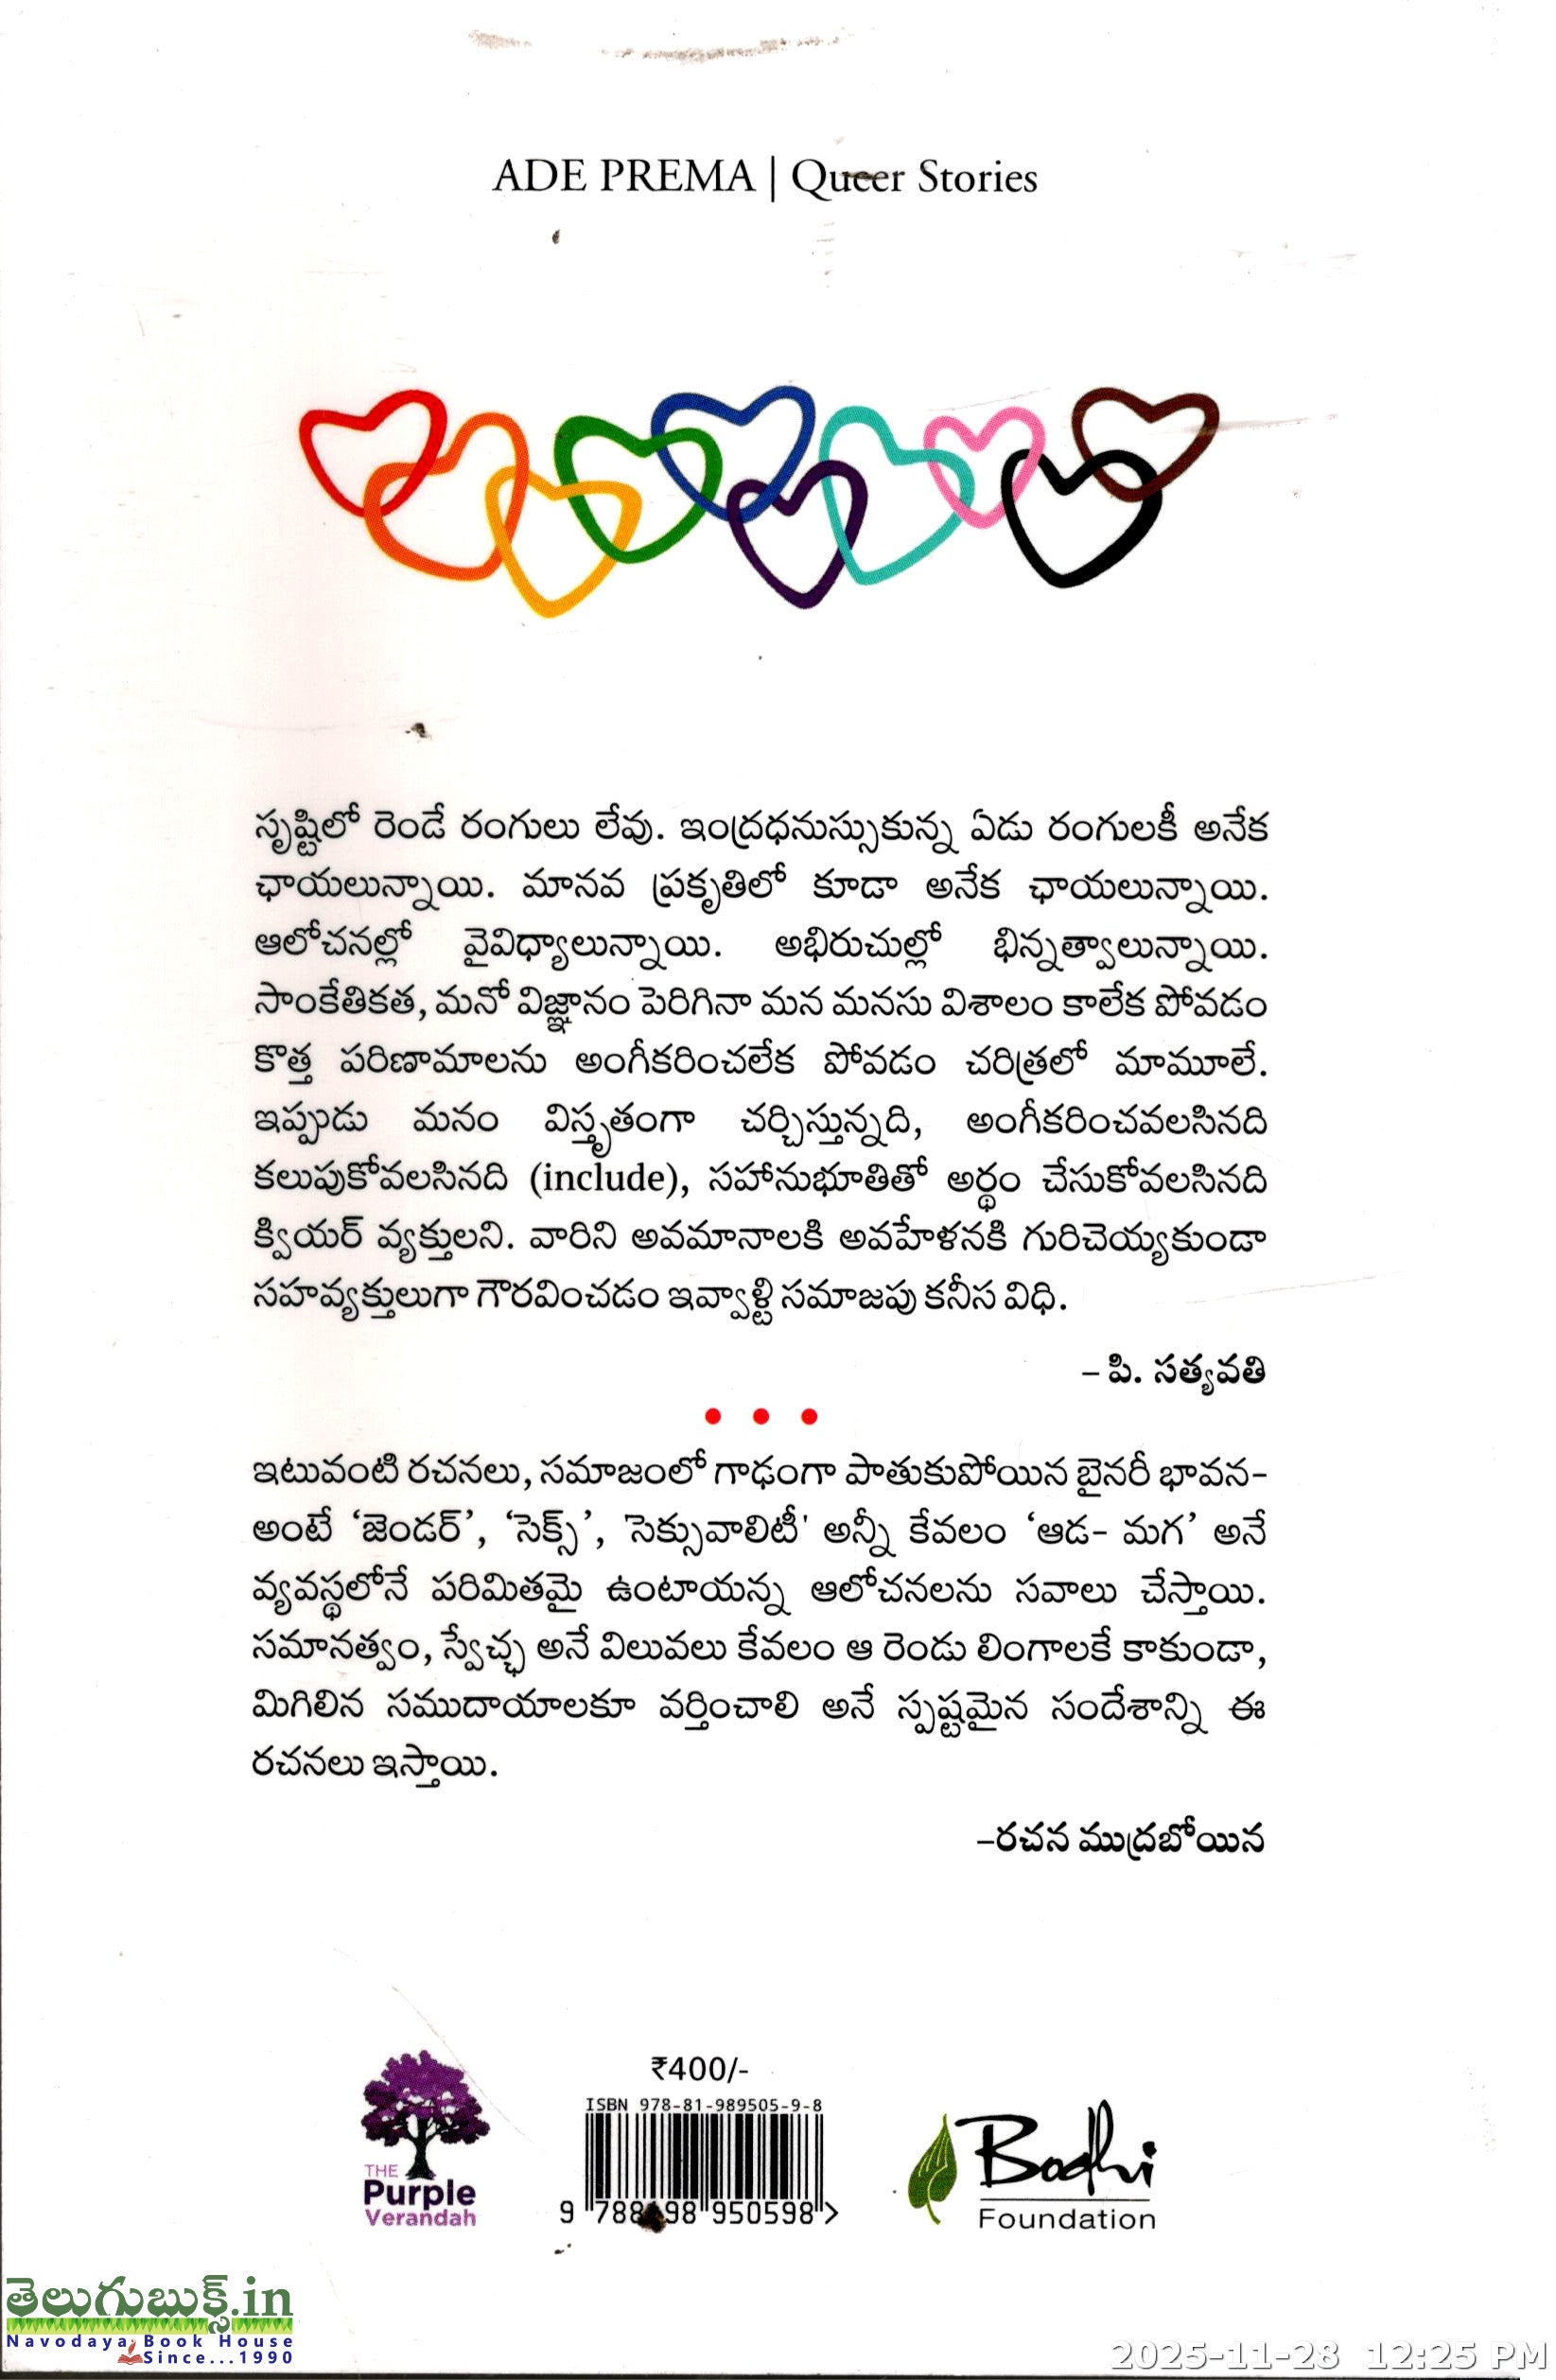 ADE PREMA | Queer Stories
సృష్టిలో రెండే రంగులు లేవు. ఇంద్రధనుస్సుకున్న ఏడు రంగులకీ అనేక
ఛాయలున్నాయి. మానవ ప్రకృతిలో కూడా అనేక ఛాయలున్నాయి.
ఆలోచనల్లో వైవిధ్యాలున్నాయి. అభిరుచుల్లో భిన్నత్వాలున్నాయి.
సాంకేతికత, మనో విజ్ఞానం పెరిగినా మన మనసు విశాలం కాలేక పోవడం
కొత్త పరిణామాలను అంగీకరించలేక పోవడం చరిత్రలో మామూలే.
ఇప్పుడు మనం విస్తృతంగా చర్చిస్తున్నది, అంగీకరించవలసినది
కలుపుకోవలసినది (include), సహానుభూతితో అర్థం చేసుకోవలసినది
క్వియర్ వ్యక్తులని. వారిని అవమానాలకి అవహేళనకి గురిచెయ్యకుండా
సహవ్యక్తులుగా గౌరవించడం ఇవ్వాళ్టి సమాజపు కనీస విధి.
– పి. సత్యవతి
• • •
ఇటువంటి రచనలు, సమాజంలో గాఢంగా పాతుకుపోయిన బైనరీ భావన-
అంటే ‘జెండర్’, ‘సెక్స్’, 'సెక్సువాలిటీ' అన్నీ కేవలం ‘ఆడ- మగ’ అనే
వ్యవస్థలోనే పరిమితమై ఉంటాయన్న ఆలోచనలను సవాలు చేస్తాయి.
సమానత్వం, స్వేచ్ఛ అనే విలువలు కేవలం ఆ రెండు లింగాలకే కాకుండా,
మిగిలిన సముదాయాలకూ వర్తించాలి అనే స్పష్టమైన సందేశాన్ని ఈ
రచనలు ఇస్తాయి.
–రచన ముద్రబోయిన
THE
Purple
Verandah
₹400/-
ISBN 978-81-989505-9-8
9 788198 950598 >
Bodhi
Foundation
తెలుగుబుక్స్.in
Navodaya Book House
Since...1990
2025-11-28 12:25 PM